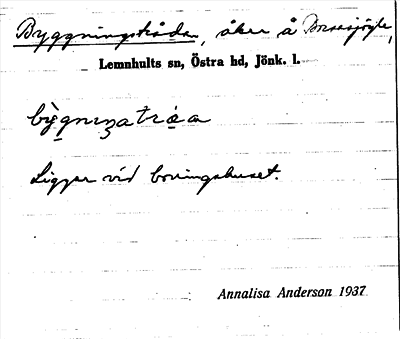 Byggningsträdan, åker å Boaasjögle,
Lemnhults sn, Östra hd, Jönk. l.
bỳgnıŋatrᶏa
Ligger vid boningshuset.
Annalisa Anderson 1937